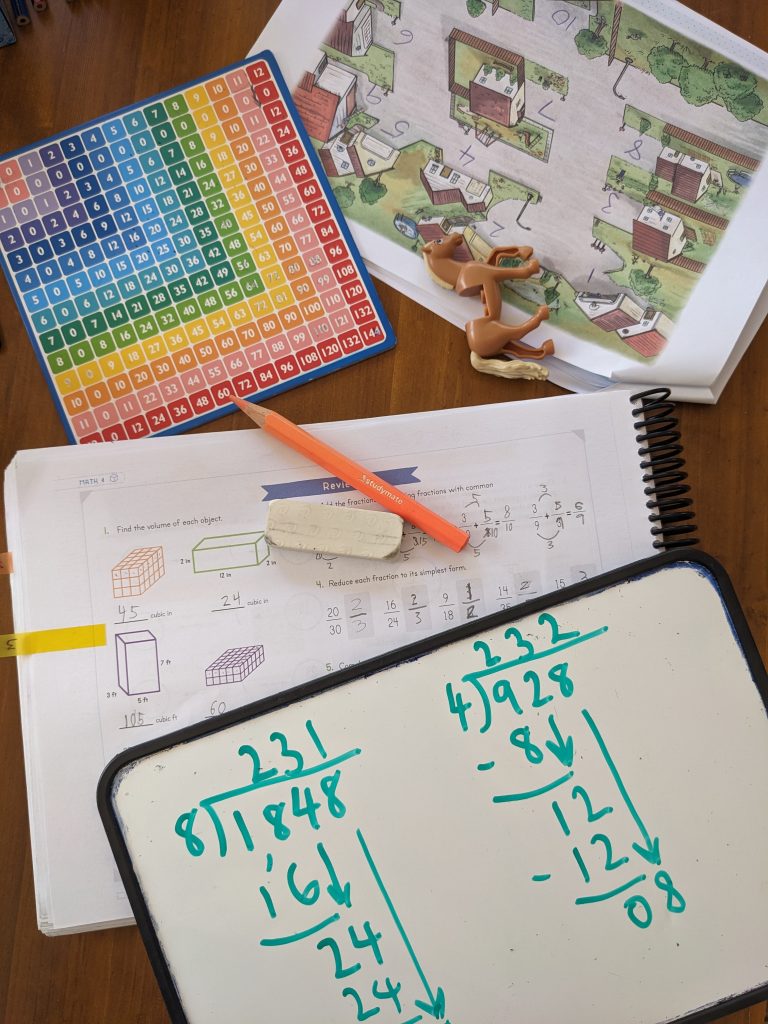 0 1 2 3 4 5 6 7 8 9 10 11 12
0 0 0 0 0 0 0 0 0 0 0 0 0
1 0 1 2 3 4 5 6 7 8 9 10 11 12
2 0 2 4 6 8 10 12 14 16 18 20 22 24
3 0 3 6 9 12 15 18 21 24 27 30 33 36
4 0 4 8 12 16 20 24 28 32 36 40 44 48
5 0 5 10 15 20 25 30 35 40 45 50 55 60
6 0 6 12 18 24 30 36 42 48 54 60 66 72
7 0 7 14 21 28 35 42 49 56 63 70 77 84
8 0 8 16 24 32 40 48 56 64 72 80 88 96
9 0 9 18 27 36 45 54 63 72 81 90 99 108
10 0 10 20 30 40 50 60 70 80 90 100 110 120
11 0 11 22 33 44 55 66 77 88 99 110 121 132
0 12 24 36 48 60 72 84 96 108 120 132 144
10
9
7
8
6
5
4
3
2
1
studymate
MATH 4
Revie
1. Find the volume of each object.
the fractions fractions with common
2 in 12 in 2 in
45 cubic in 24 cubic in
3 ft 5 ft 7 ft
105 cubic ft 60
3 5 8
5 10 10
3 + 5 = 6
9 9 9
4. Reduce each fraction to its simplest form.
20 2 16 2 9 1 14 2 15
30 3 24 3 18 2
5.
231
8)1848
16
24
24
232
4)928
- 8
12
- 12
08